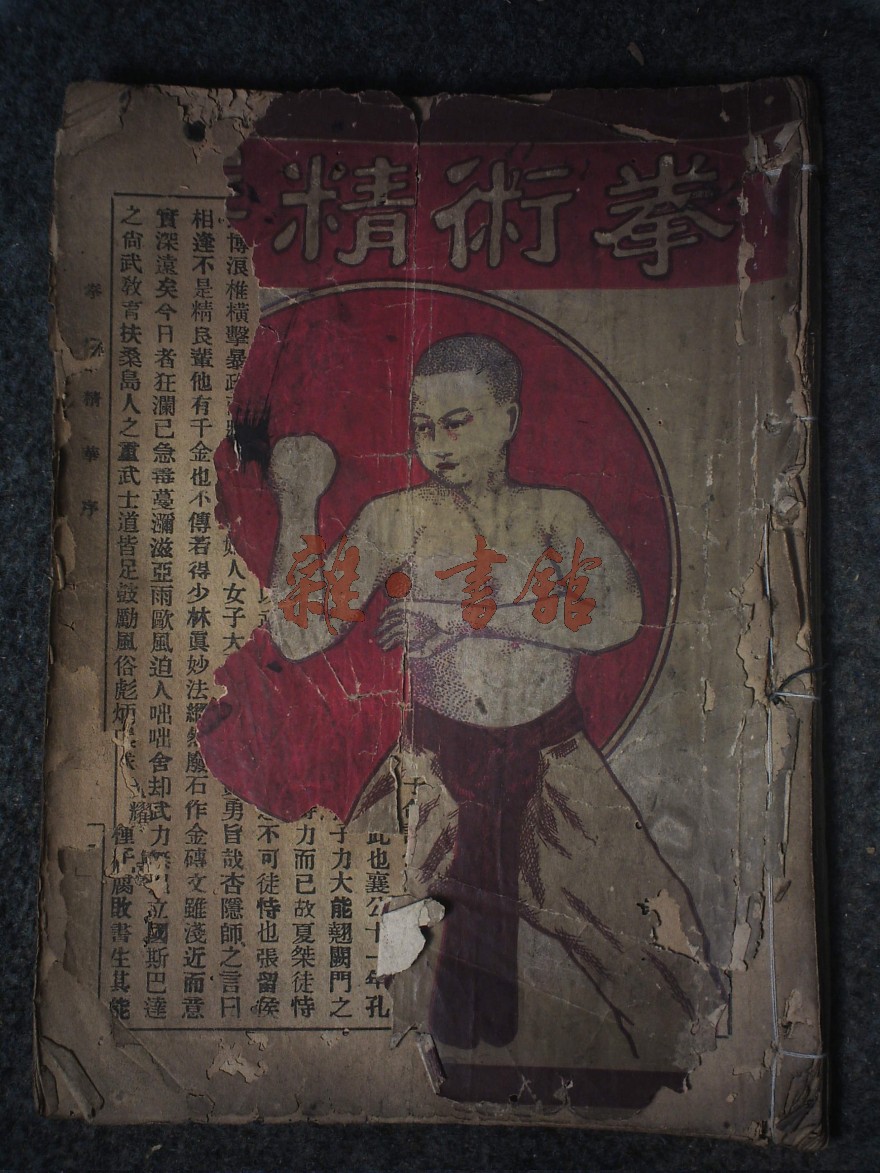 拳術精
此也襄公十一年孔
子力大能翹關門之
力而已故夏桀徒恃
不可徒恃也張留侯
博浪椎橫擊暴政 人女子大 勇旨哉杏隱師之言曰
相逢不是精良輩他有千金也不傳若得少林眞妙法 然廢石作金磚文雖淺近而意
實深遠矣今日者狂瀾已急毒蔓瀰滋亞雨歐風迫人咄咄舍却武力 立國斯巴達
之尚武敎育扶桑島人之重武士道皆足鼓勵風俗彪炳 耀 種 腐敗書生其能
拳 精華序
雜·書館